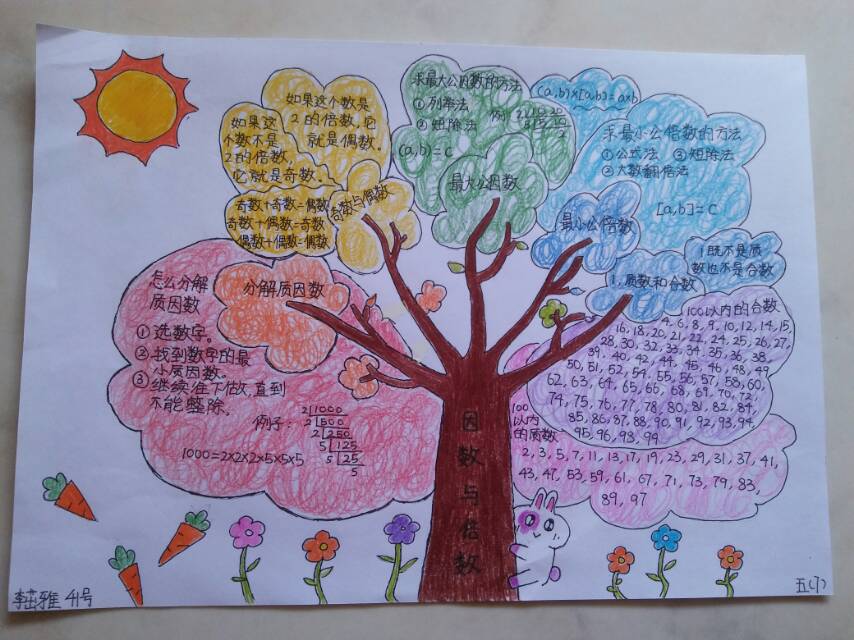 如果这个数是
2的倍数,它
就是偶数。
如果这
个数不是
2的倍数,
它就是奇数。
奇数+奇数=偶数
奇数+偶数=奇数
偶数+偶数=偶数
奇数与偶数
求最大公因数的方法
①列举法
②短除法
例:
(a,b)=c
最大公因数
(a,b)×[a,b]=a×b
求最小公倍数的方法
①公式法 ③短除法
②大数翻倍法
[a,b]=c
最小公倍数
1既不是质
数也不是合数
1,质数和合数
分解质因数
怎么分解
质因数
①选数字。
②找到数字的最
小质因数。
③继续往下做,直到
不能整除。
例子:
2 1000
2 500
2 250
5 125
5 25
5
1000=2×2×2×5×5×5
100以内的合数
4, 6, 8, 9, 10, 12, 14, 15,
16, 18, 20, 21, 22, 24, 25, 26, 27,
28, 30, 32, 33, 34, 35, 36, 38,
39, 40, 42, 44, 45, 46, 48, 49,
50, 51, 52, 54, 55, 56, 57, 58, 60,
62, 63, 64, 65, 66, 68, 69, 70, 72,
74, 75, 76, 77, 78, 80, 81, 82, 84,
85, 86, 87, 88, 90, 91, 92, 93, 94,
95, 96, 98, 99
100
以内
的质数
2, 3, 5, 7, 11, 13, 17, 19, 23, 29, 31, 37, 41,
43, 47, 53, 59, 61, 67, 71, 73, 79, 83,
89, 97
因数与倍数
雅 41号
五(1)